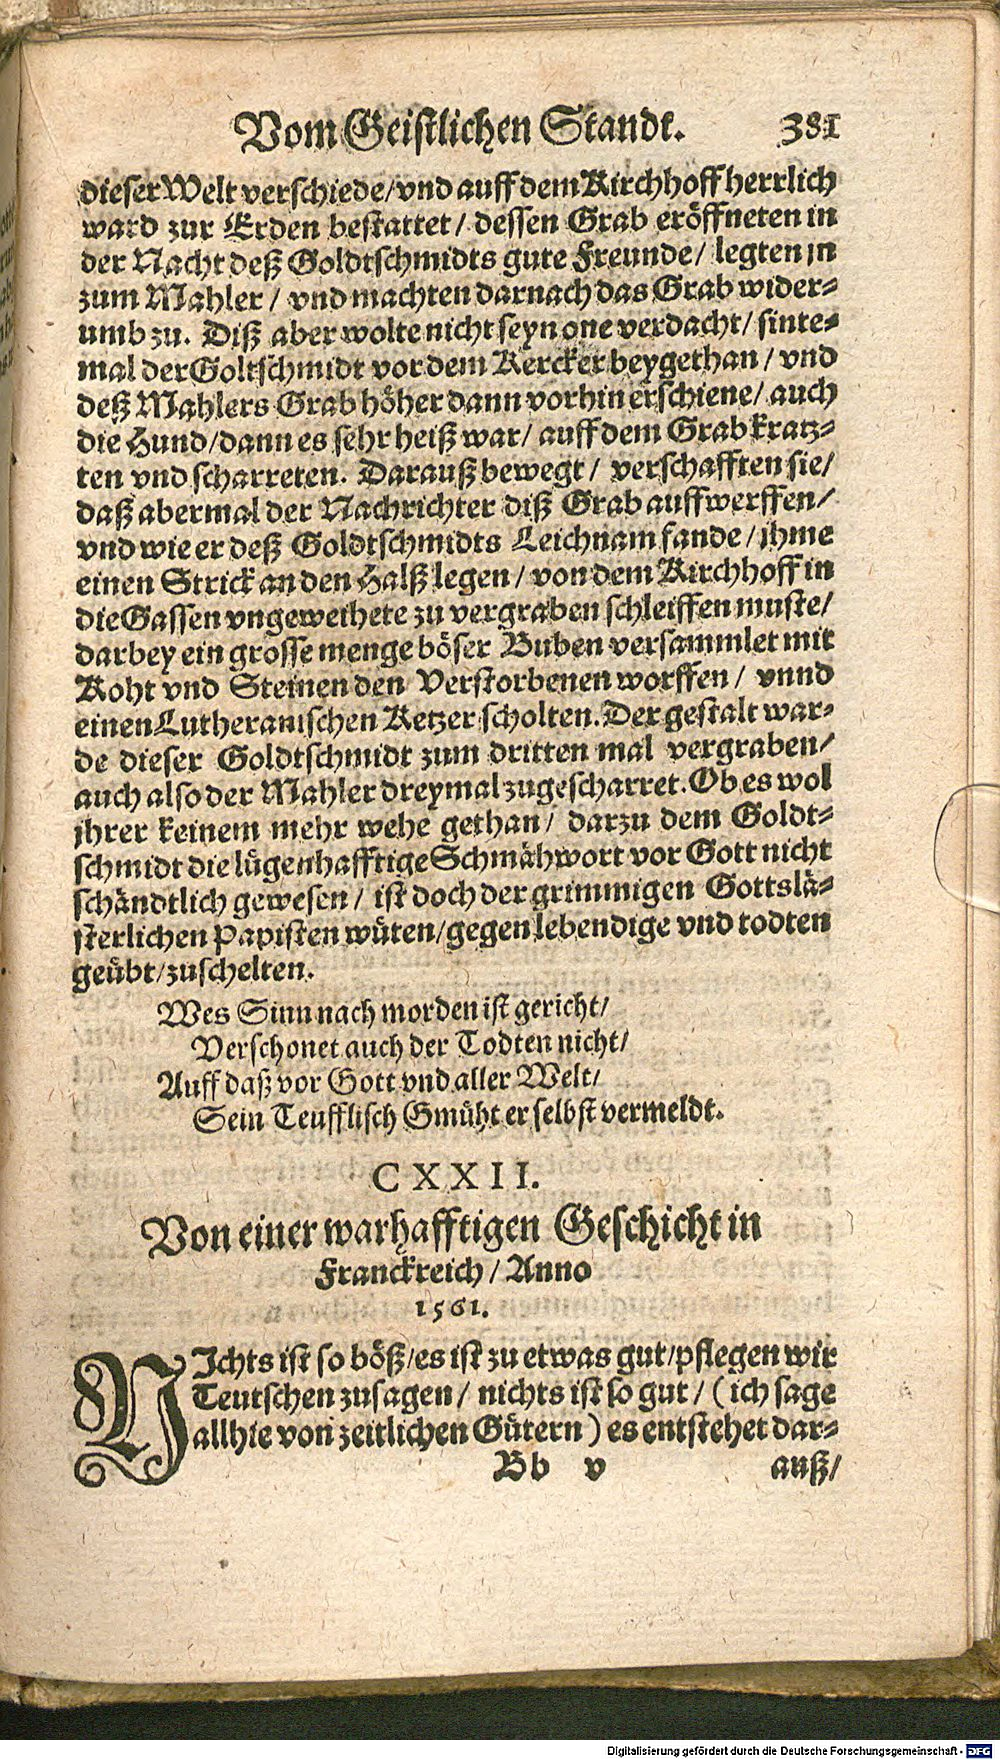 Vom Geistlichen Standt. 381
dieser Welt verschiede/vnd auff dem Kirchhoff herrlich
ward zur Erden bestattet/ dessen Grab eröffneten in
der Nacht deß Goldtschmidts gute Freunde/ legten jn
zum Mahler/ vnd machten darnach das Grab wider-
umb zu. Diß aber wolte nicht seyn one verdacht/ sinte-
mal der Goltschmidt vor dem Kercker beygethan/ vnd
deß Mahlers Grab höher dann vorhin erschiene/ auch
die Hund/dann es sehr heiß war/ auff dem Grab kratz-
ten vnd scharreten. Darauß bewegt/ verschafften sie/
daß abermal der Nachrichter diß Grab auffwerffen/
vnd wie er deß Goldtschmidts Leichnam fande/ jhme
einen Strick an den Halß legen/ von dem Kirchhoff in
die Gassen vngeweihete zu vergraben schleiffen muste/
darbey ein grosse menge böser Buben versammlet mit
Koht vnd Steinen den Verstorbenen worffen/ vnnd
einen Lutheranischen Ketzer scholten. Der gestalt war-
de dieser Goldtschmidt zum dritten mal vergraben/
auch also der Mahler dreymal zugescharret. Ob es wol
jhrer keinem mehr wehe gethan/ darzu dem Goldt-
schmidt die lügenhafftige Schmähwort vor Gott nicht
schändtlich gewesen/ ist doch der grimmigen Gottslä-
sterlichen Papisten wüten/gegen lebendige vnd todten
geübt/zuschelten.
Wes Sinn nach morden ist gericht/
Verschonet auch der Todten nicht/
Auff daß vor Gott vnd aller Welt/
Sein Teufflisch Gmüht er selbst vermeldt.
CXXII.
Von einer warhafftigen Geschicht in
Franckreich/ Anno
1561.
NIchts ist so böß/es ist zu etwas gut/pflegen wir
Teutschen zusagen/ nichts ist so gut/ (ich sage
allhie von zeitlichen Gütern) es entstehet dar-
Bb v auß/
Digitalisierung gefördert durch die Deutsche Forschungsgemeinschaft - DFG